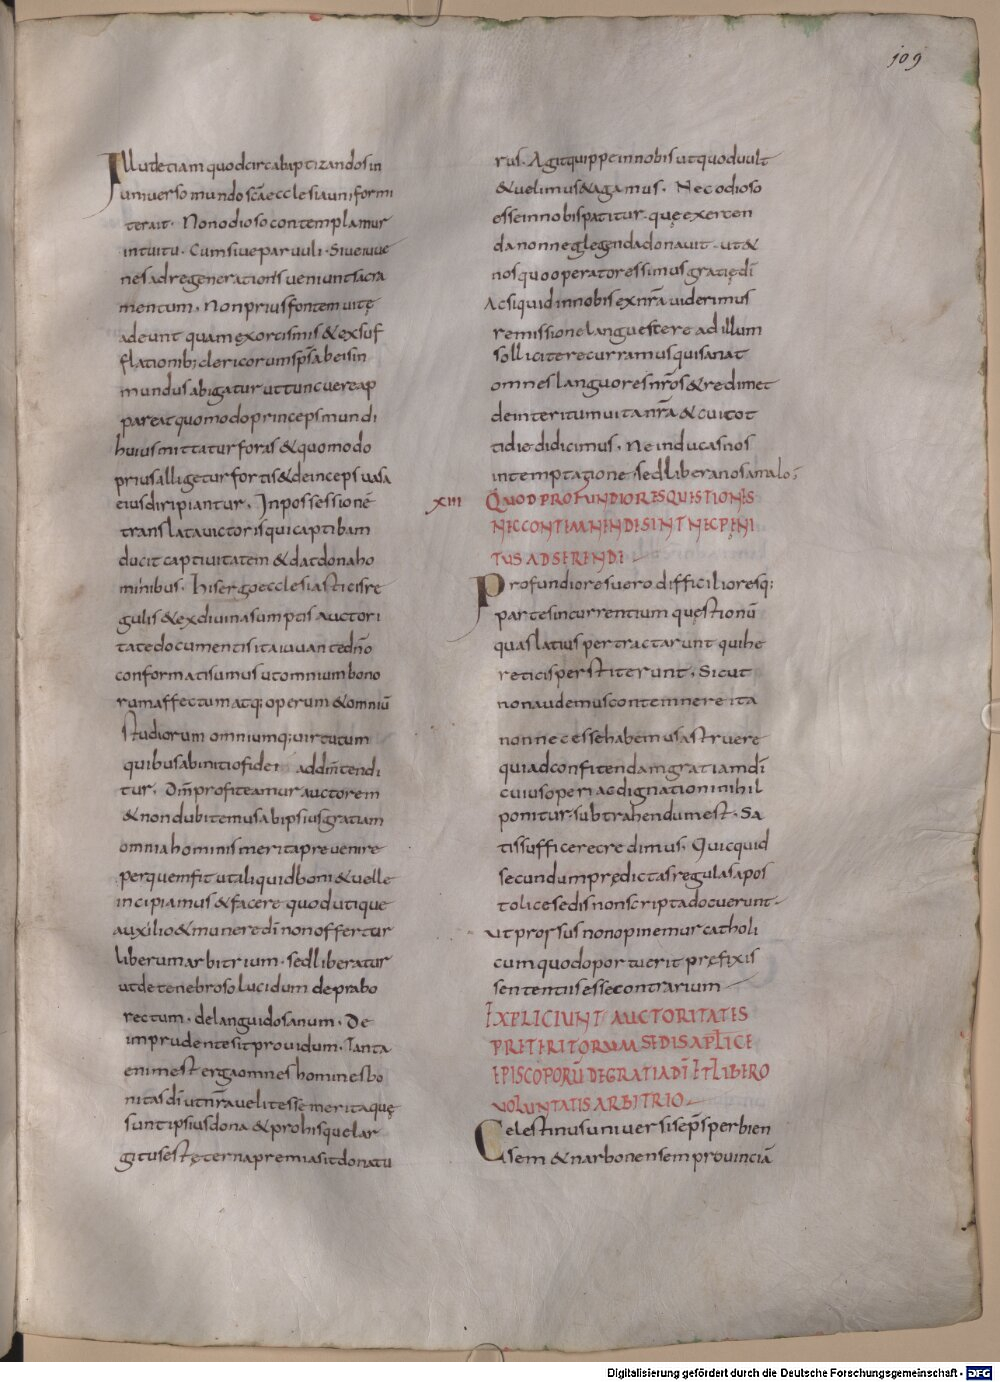 109
Illud etiam quod circa baptizandos in
universo mundo scā ecclesia uniformi
ter ait · Non odioso contemplamur
intuitu · Cum sive parvuli · Sive iuve
nes ad regenerationis veniunt sacra
mentum · Non prius fontem vitę
adeunt quam exorcismis & exsuf
flationib; clericorum sp̄s ab eis in
mundus abigatur ut tunc vere ap
pareat quomodo princeps mundi
huius mittatur foras & quomodo
prius alligetur fortis & deinceps vasa
eius diripiantur · In possessionē
translata victoris qui captibam
ducit captivitatem & dat dona ho
minibus · His ergo ecclesiasticis re
gulis & ex divina sumptis auctori
tate documentis ita iuvante dn̄o
conformati sumus ut omnium bono
rum affectum atq; operum & omniū
studiorum omniumq; virtutum
quibus ab initio fidei ad dm̄ tendi
tur · Dm̄ profiteamur auctorem
& non dubitemus ab ipsius gratiam
omnia hominis merita prevenire
per quem fit ut aliquid boni & velle
incipiamus & facere quod utique
auxilio & munere dī non offertur
liberum arbitrium · sed liberatur
ut de tenebroso lucidum de prabo
rectum · de languido sanum · De
imprudente sit providum · Tanta
enim est erga omnes homines bo
nitas dī ut nr̄a velit esse merita quę
sunt ipsius dona & pro his que lar
gitus est ęterna premia sit donatu
rus · Agit quippe in nobis ut quod vult
& velimus & agamus · Nec odioso
esse in nobis patitur · quę exercen
da non neglegenda donavit · ut &
nos quooperatores simus gratię dī
Ac si quid in nobis ex nr̄a viderimus
remissione languescere ad illum
sollicite recurramus qui sanat
omnes languores nr̄os & redimet
de interitum vita nr̄a & cui cot
tidie didicimus · Ne inducas nos
in temptatione · sed libera nos a malo ;
XIII QUOD PROFUNDIORES QUESTIONES
NEC CONTEMNENDE SINT NEC PENI
TUS ADSERENDI
Profundiores vero difficilioresq;
partes incurrentium quęstionū
quas latius pertractarunt qui he
reticis perstiterunt · Sicut
non audemus contemnere ita
non necesse habemus astruere
qui ad confitendam gratiam dī
cuius operi ac dignationi nihil
ponitur · subtrahendum est · Sa
tis sufficere credimus · Quicquid
secundum prędictas regulas apos
tolice sedis non scripta docuerunt ·
ut prorsus non opinemur catholi
cum quod oportuerit prefixis
sententiis esse contrarium
EXPLICIUNT AUCTORITATES
PRETERITORUM SEDIS APL̄ICE
EPISCOPORŪ DE GRATIA DĪ ET LIBERO
VOLUNTATIS ARBITRIO
Celestinus universis ep̄s per bien
sem & narbonensem provinciā
Digitalisierung gefördert durch die Deutsche Forschungsgemeinschaft - DFG